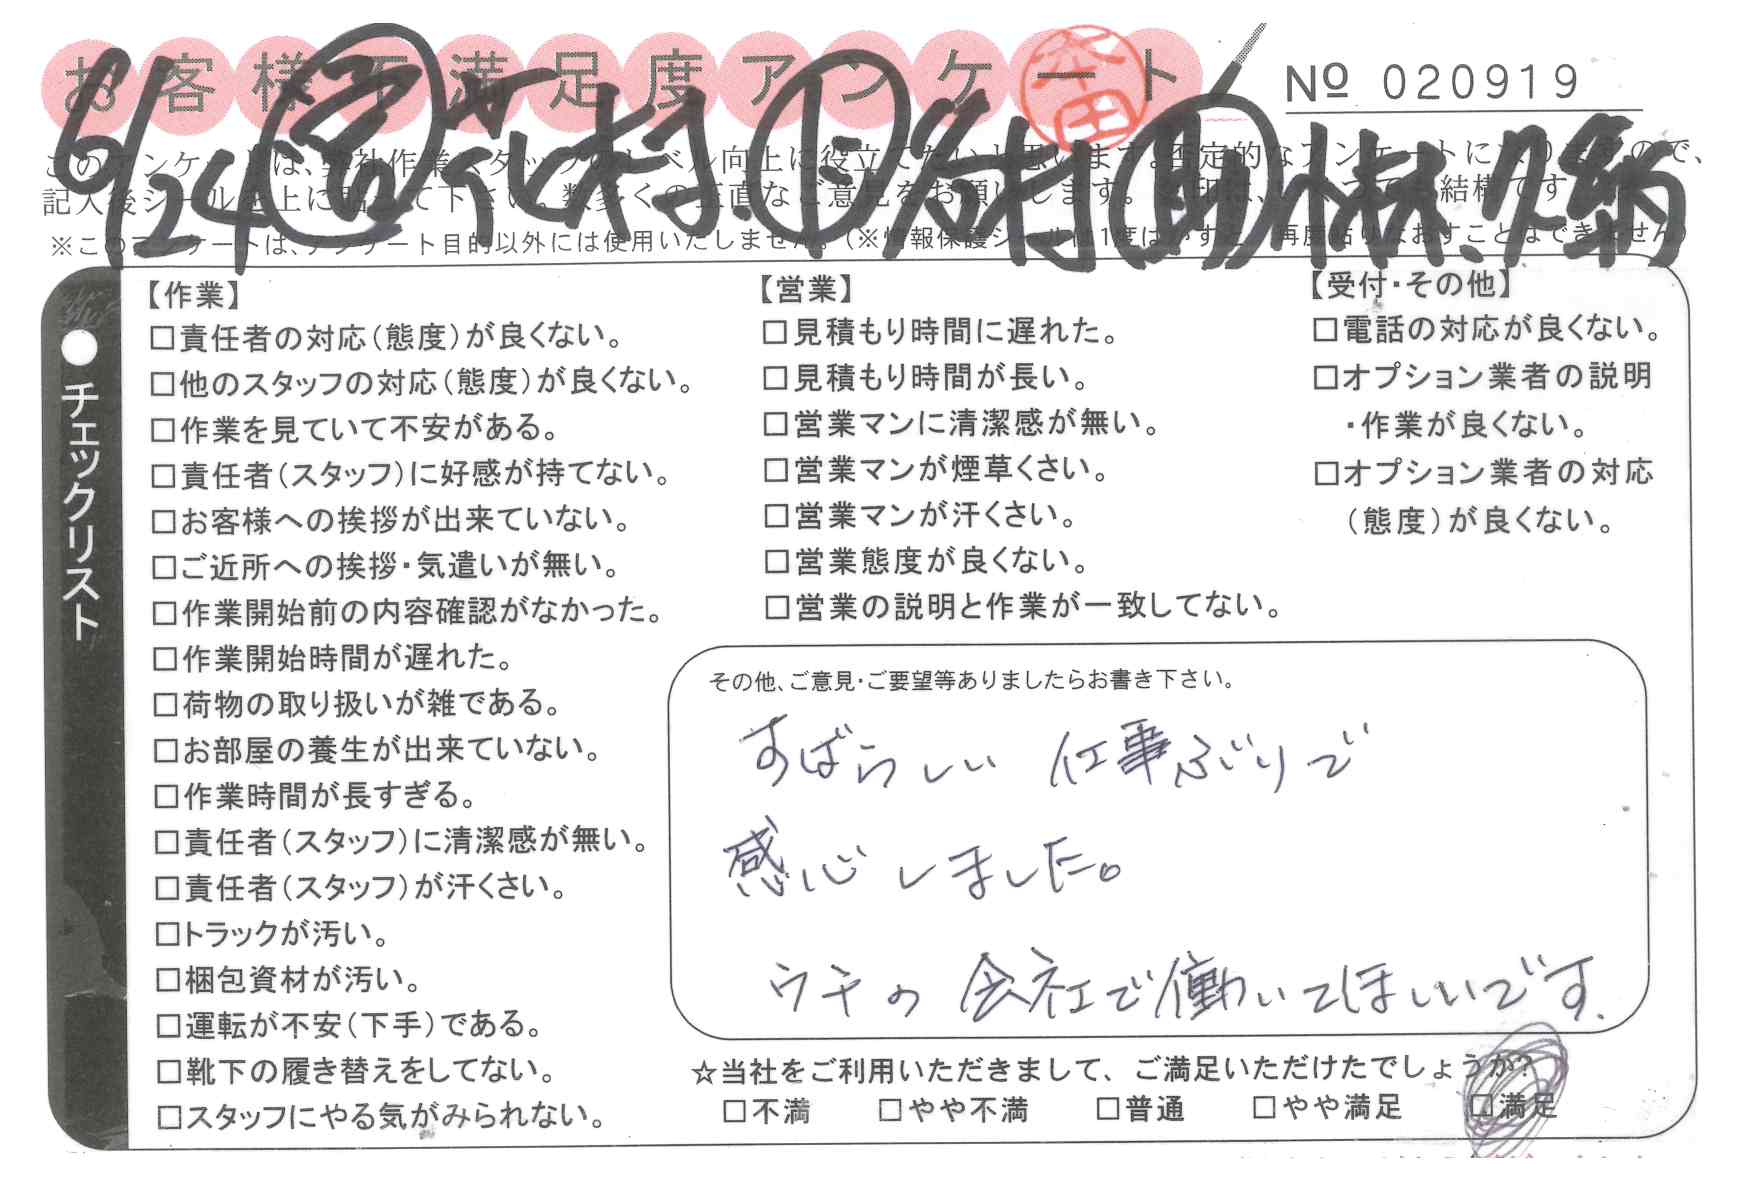 お客様不満足度アンケート
№ 020919
6/24 営 志村 ト 名村 助 小林、久納
このアンケートは、弊社作業スタッフのレベル向上に役立てたいと思います。否定的なアンケートになりますので、
記入後シールを上に貼って下さい。数多くの正直なご意見をお願いします。
※このアンケートは、アンケート目的以外には使用いたしません。(※情報保護シールは1度はがすと、再度貼りなおすことはできません)
●チェックリスト
【作業】
□責任者の対応(態度)が良くない。
□他のスタッフの対応(態度)が良くない。
□作業を見ていて不安がある。
□責任者(スタッフ)に好感が持てない。
□お客様への挨拶が出来ていない。
□ご近所への挨拶・気遣いが無い。
□作業開始前の内容確認がなかった。
□作業開始時間が遅れた。
□荷物の取り扱いが雑である。
□お部屋の養生が出来ていない。
□作業時間が長すぎる。
□責任者(スタッフ)に清潔感が無い。
□責任者(スタッフ)が汗くさい。
□トラックが汚い。
□梱包資材が汚い。
□運転が不安(下手)である。
□靴下の履き替えをしてない。
□スタッフにやる気がみられない。
【営業】
□見積もり時間に遅れた。
□見積もり時間が長い。
□営業マンに清潔感が無い。
□営業マンが煙草くさい。
□営業マンが汗くさい。
□営業態度が良くない。
□営業の説明と作業が一致してない。
【受付・その他】
□電話の対応が良くない。
□オプション業者の説明
・作業が良くない。
□オプション業者の対応
(態度)が良くない。
その他、ご意見・ご要望等ありましたらお書き下さい。
すばらしい 仕事ぶりで
感心しました。
ウチの会社で働いてほしいです.
☆当社をご利用いただきまして、ご満足いただけたでしょうか?
□不満 □やや不満 □普通 □やや満足 □満足